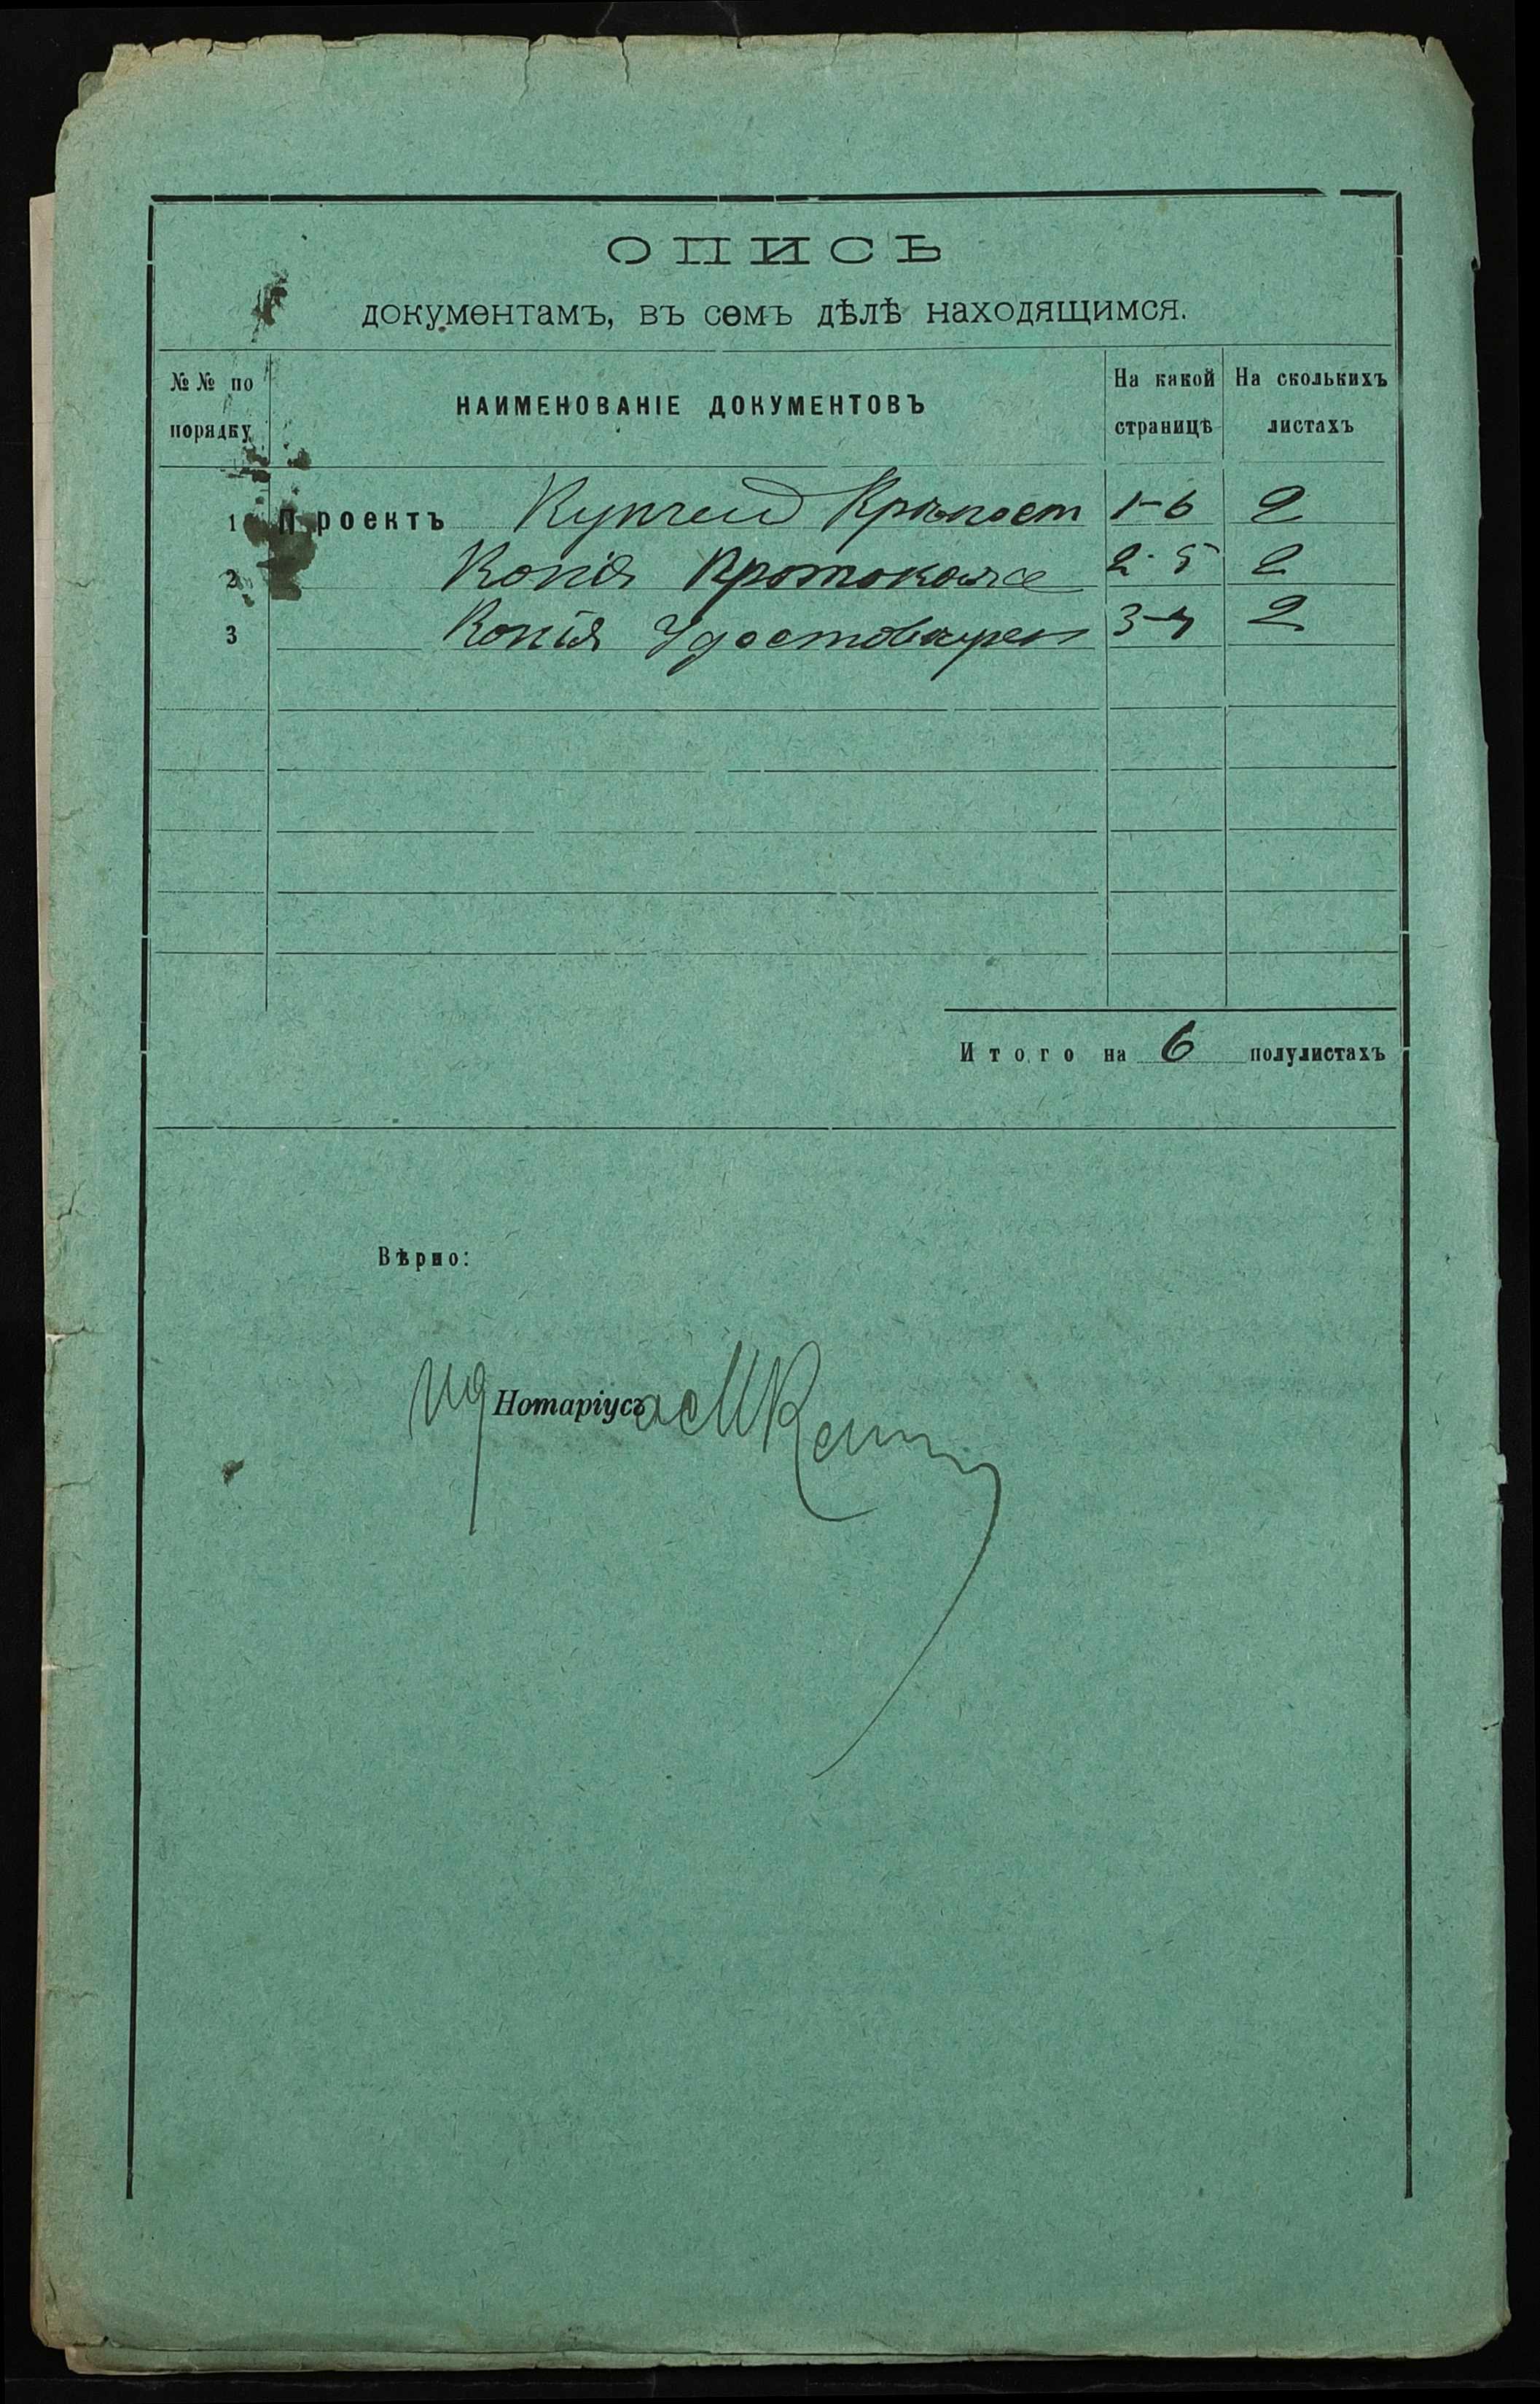 ОПИСЬ
документамъ, въ семъ дѣлѣ находящимся.
№№ по порядку
НАИМЕНОВАНІЕ ДОКУМЕНТОВЪ
На какой страницѣ
На сколькихъ листахъ
1 Проектъ Купчей Крѣпост 1-6 2
2 Копія Протокола 2-5 2
3 Копія Удостовѣрен 3-4 2
Итого на 6 полулистахъ
Вѣрно:
Нотаріусъ